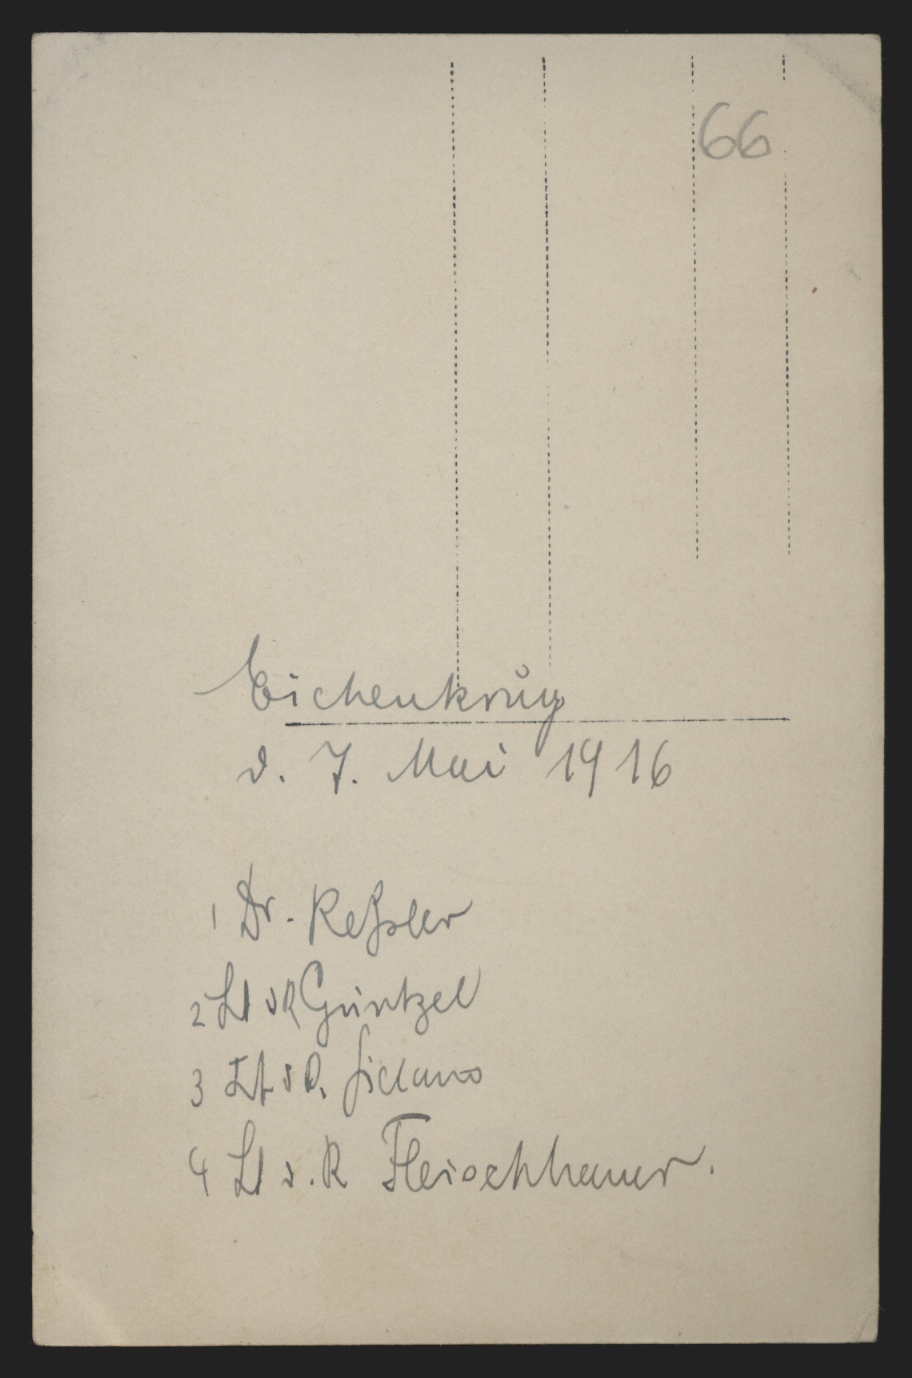 66
Eichenkrug
d. 7. Mai 1916
1 Dr. Keßler
2 Lt d R Güntzel
3 Lt d R.
4 Lt d. R Fleischhauer.